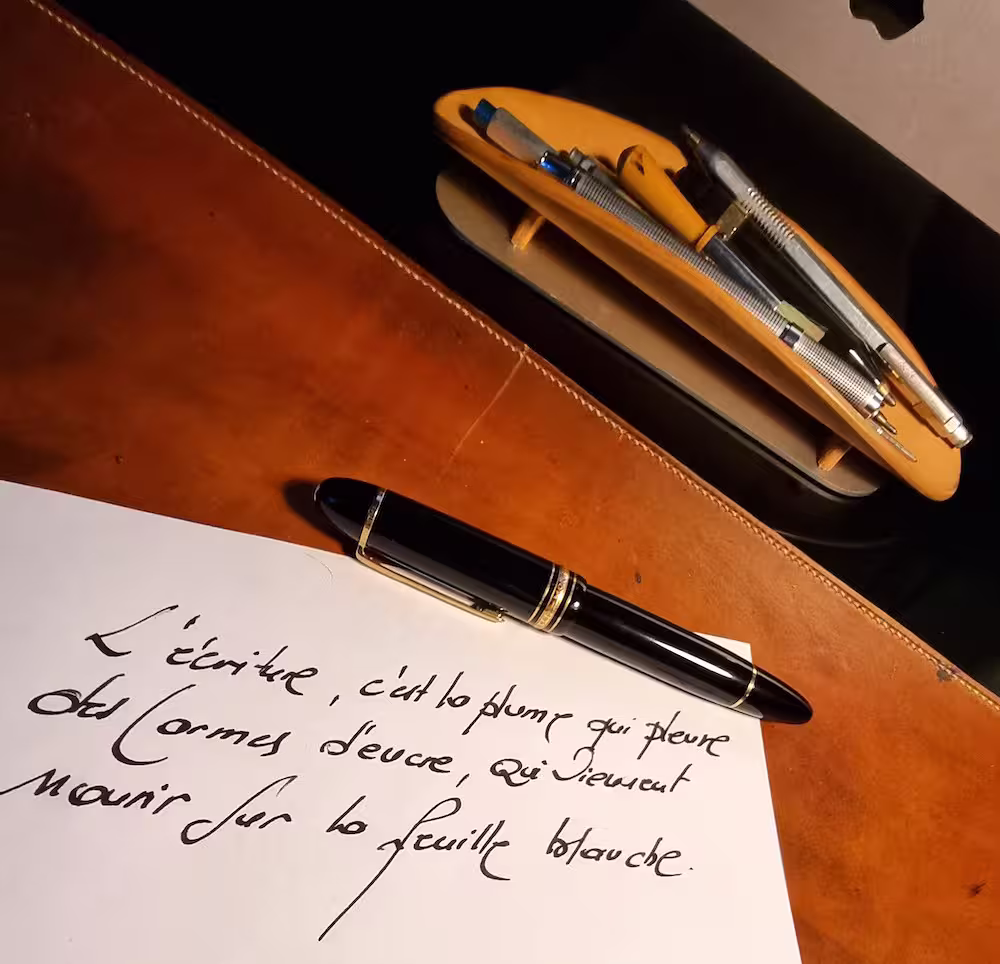 L'écriture, c'est la plume qui pleure
des larmes d'encre, qui viennent
mourir sur la feuille blanche.